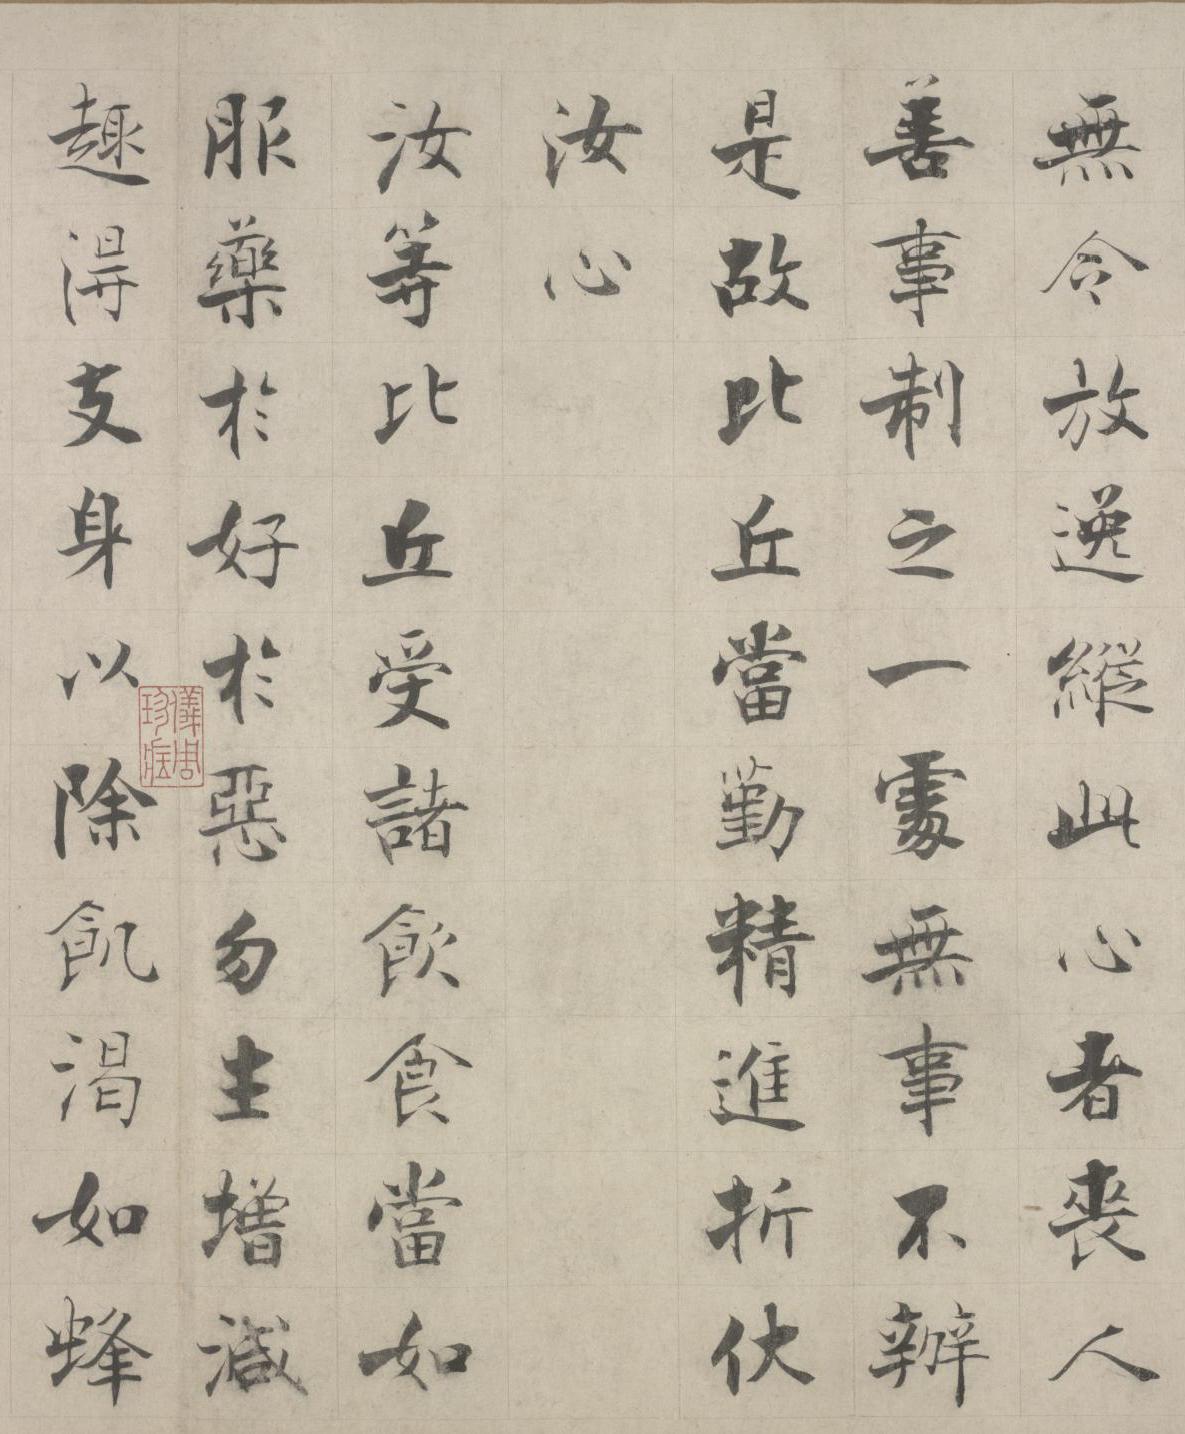 無令放逸縱此心者喪人
善事制之一處無事不辦
是故比丘當勤精進折伏
汝心
汝等比丘受諸飲食當如
服藥於好於惡勿生增減
趣得支身以除飢渴如蜂
儀周珍藏